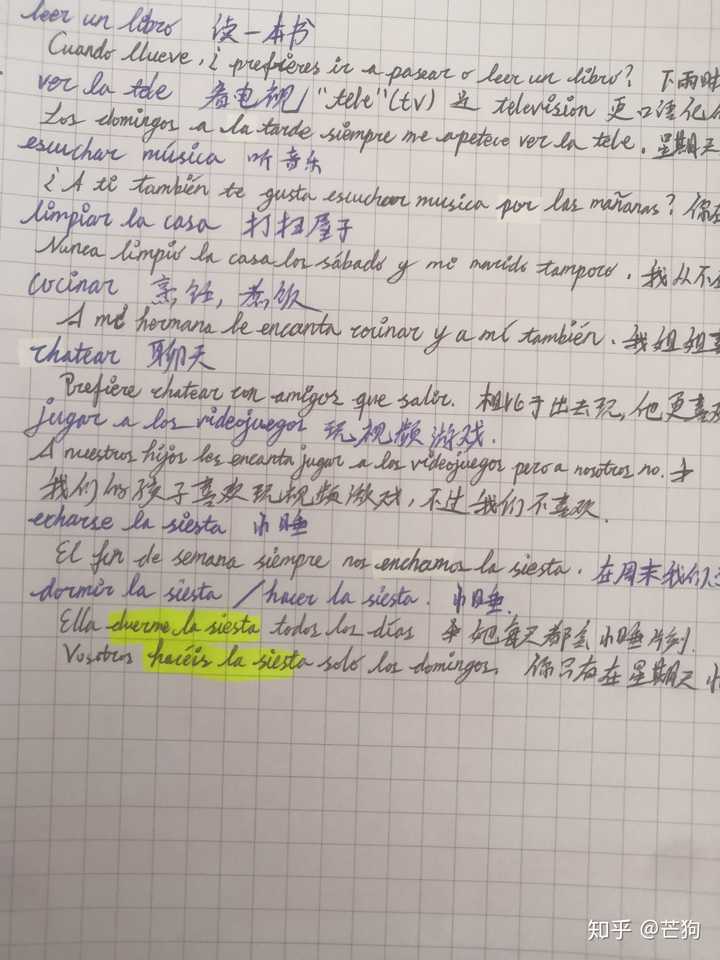 leer un libro 读一本书
Cuando llueve, ¿prefieres ir a pasear o leer un libro? 下雨时
ver la tele 看电视/"tele"(tv) 比 television 更口语化
Los domingos a la tarde siempre me apetece ver la tele. 星期天
escuchar música 听音乐
¿A ti también te gusta escuchar musica por las mañanas? 你
limpiar la casa 打扫屋子
Nunca limpio la casa los sábado y mi marido tampoco. 我从不
cocinar 烹饪, 煮饭
A mi hermana le encanta cocinar y a mí también. 我姐姐喜
chatear 聊天
Prefiere chatear con amigos que salir. 相比于出去玩, 他更喜欢
jugar a los videojuegos 玩视频游戏.
A nuestros hijos les encanta jugar a los videojuegos pero a nosotros no.
我们的孩子喜欢玩视频游戏, 不过我们不喜欢.
echarse la siesta 小睡
El fin de semana siempre nos enchamos la siesta. 在周末我们
dormir la siesta / hacer la siesta. 小睡.
Ella duerme la siesta todos los días 她每天都会小睡片刻.
Vosotros hacéis la siesta solo los domingos. 你只有在星期天小
知乎 @芒狗